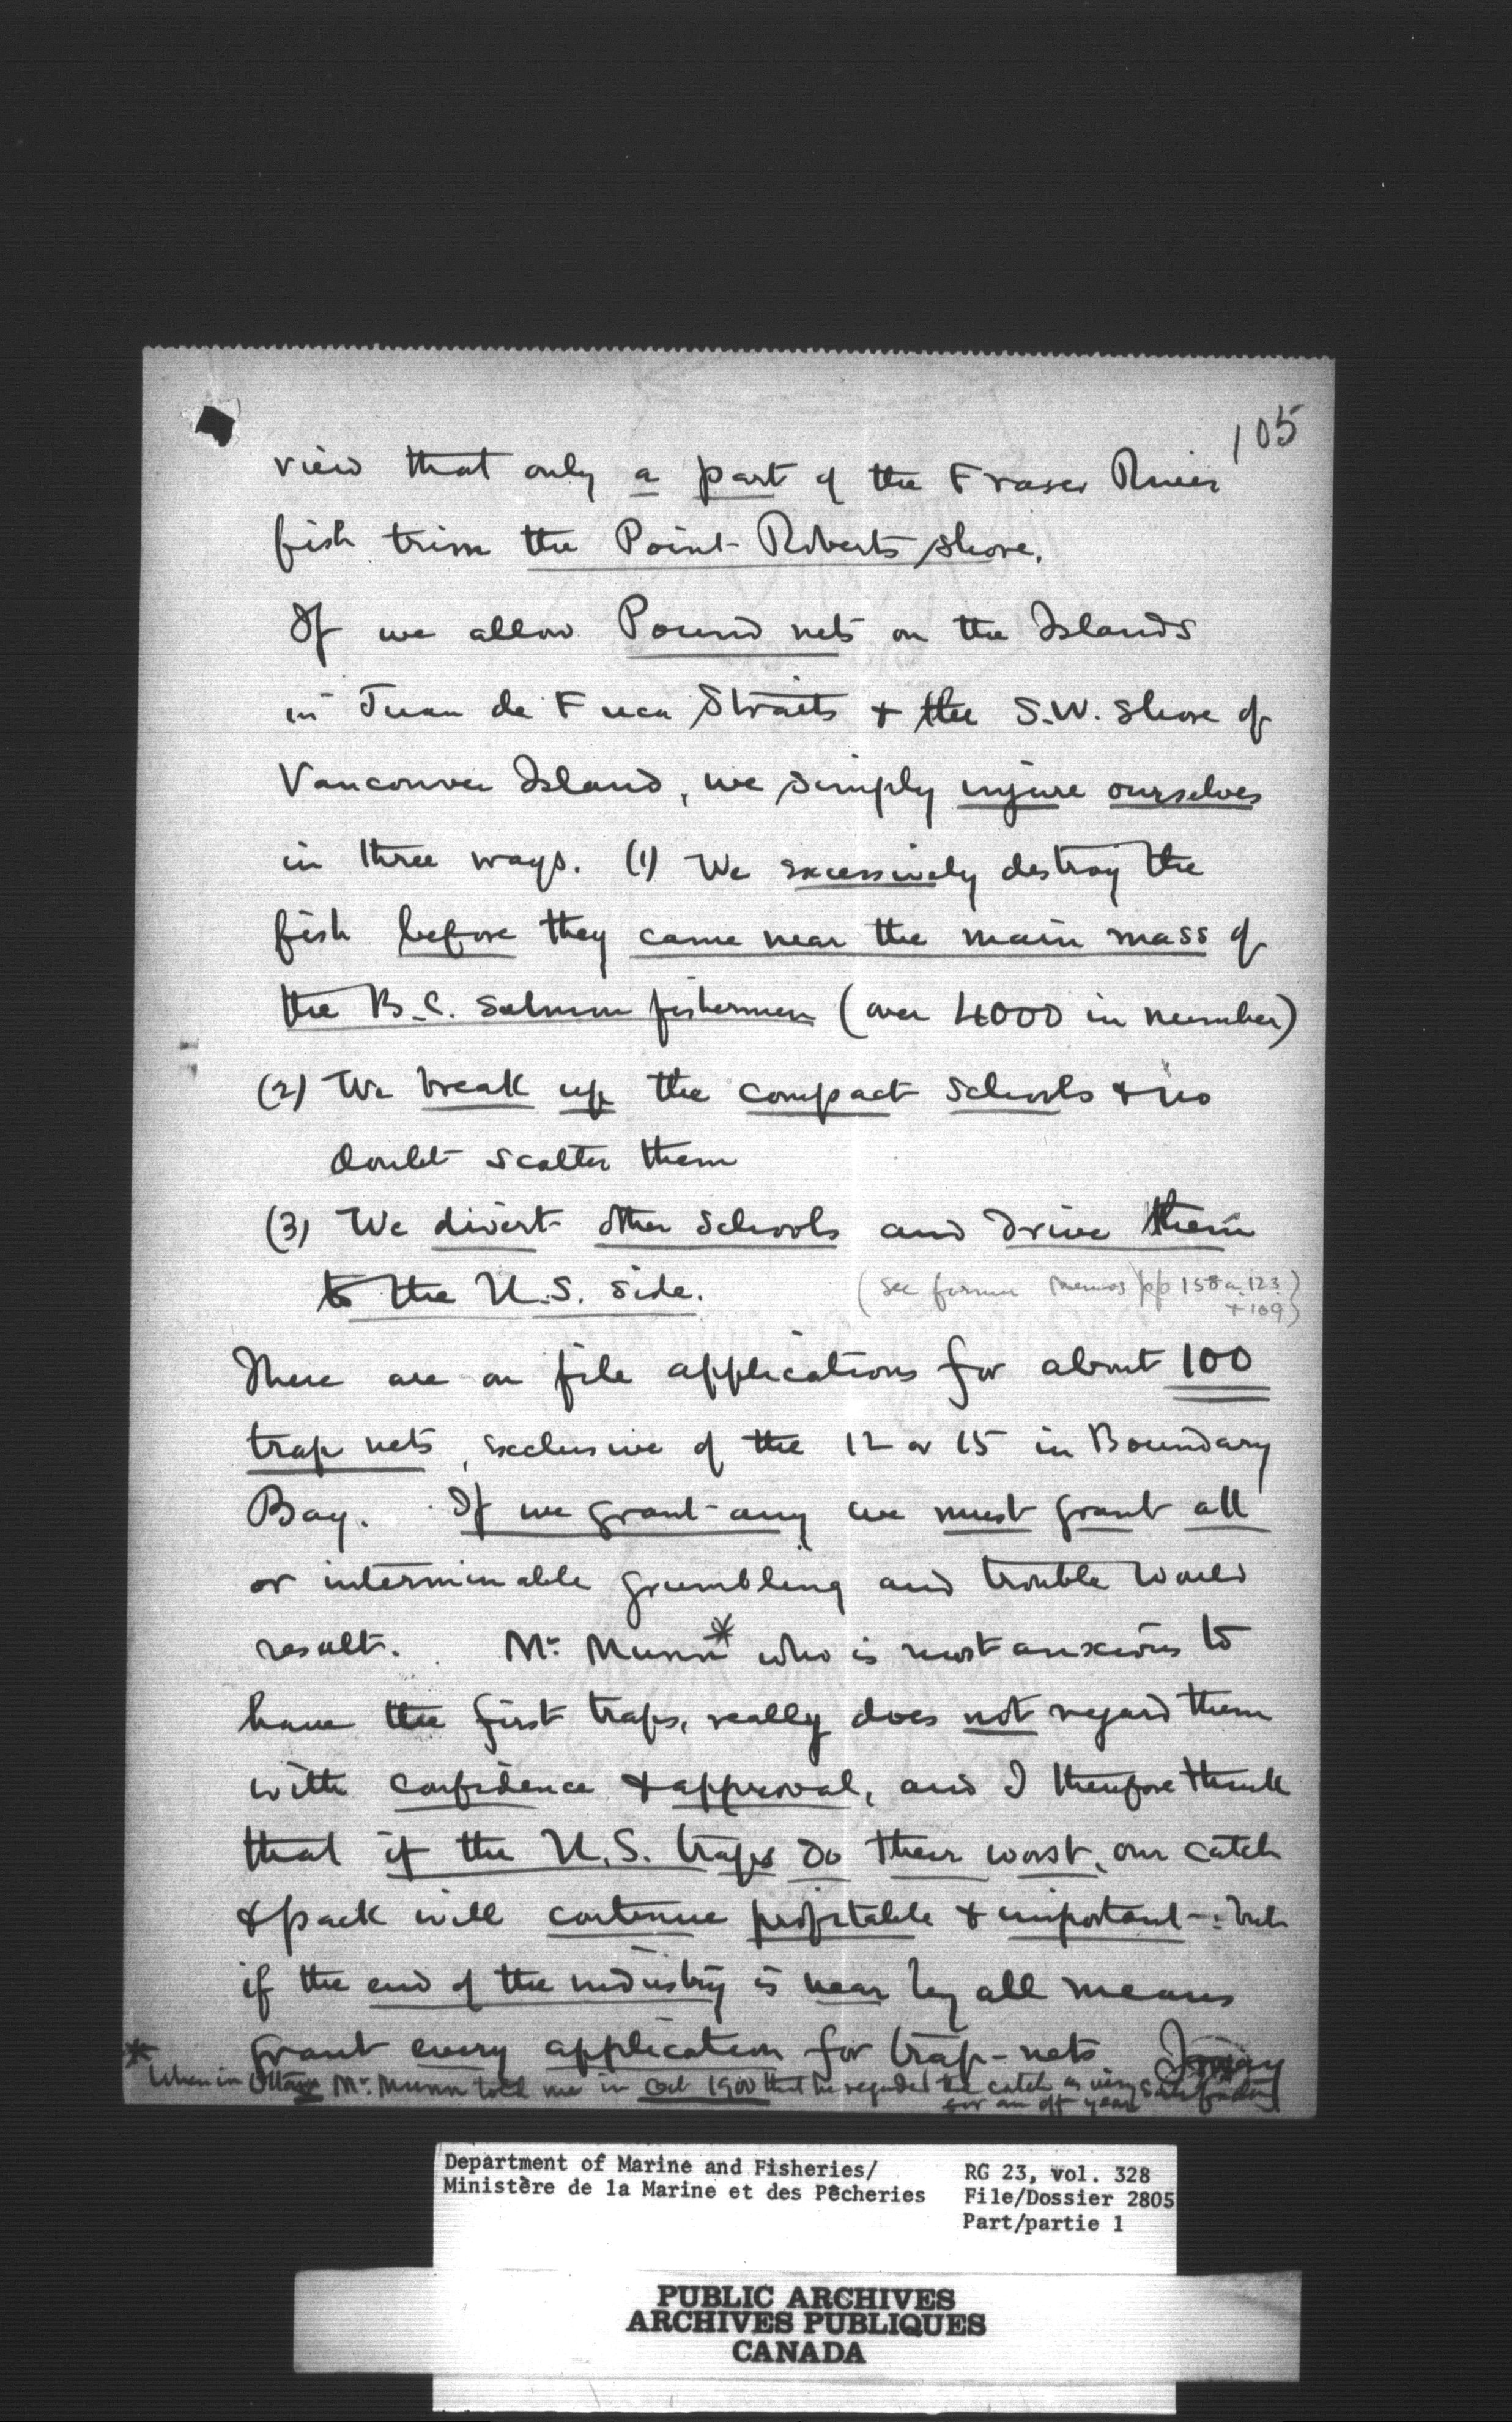 105
view that only a part of the Fraser River
fish trim the Point Roberts shore.
If we allow Pound nets on the Islands
in Juan de Fuca Straits & the S.W. Shore of
Vancouver Island, we simply injure ourselves
in three ways. (1) We excessively destroy the
fish before they come near the main mass of
the B.C. Salmon fishermen (over 4000 in number)
(2) We break up the compact schools & no
doubt scatter them
(3) We divert other schools and drive them
to the U.S. side.
(see former memos pp 158a 123
+ 109)
There are on file applications for about 100
trap nets, exclusive of the 12 or 15 in Boundary
Bay. If we grant any we must grant all
or interminable grumbling and trouble would
result. Mr. Munn* who is most anxious to
have the first traps, really does not regard them
with confidence & approval, and I therefore think
that if the U.S. traps do their worst, our catch
& pack will continue profitable & important - : but
if the end of the industry is near by all means
grant every application for trap-nets
* When in Ottawa Mr. Munn told me in Oct 1900 that he regarded the catch as very satisfactory
for an off year
Department of Marine and Fisheries/
Ministère de la Marine et des Pêcheries
RG 23, vol. 328
File/Dossier 2805
Part/partie 1
PUBLIC ARCHIVES
ARCHIVES PUBLIQUES
CANADA